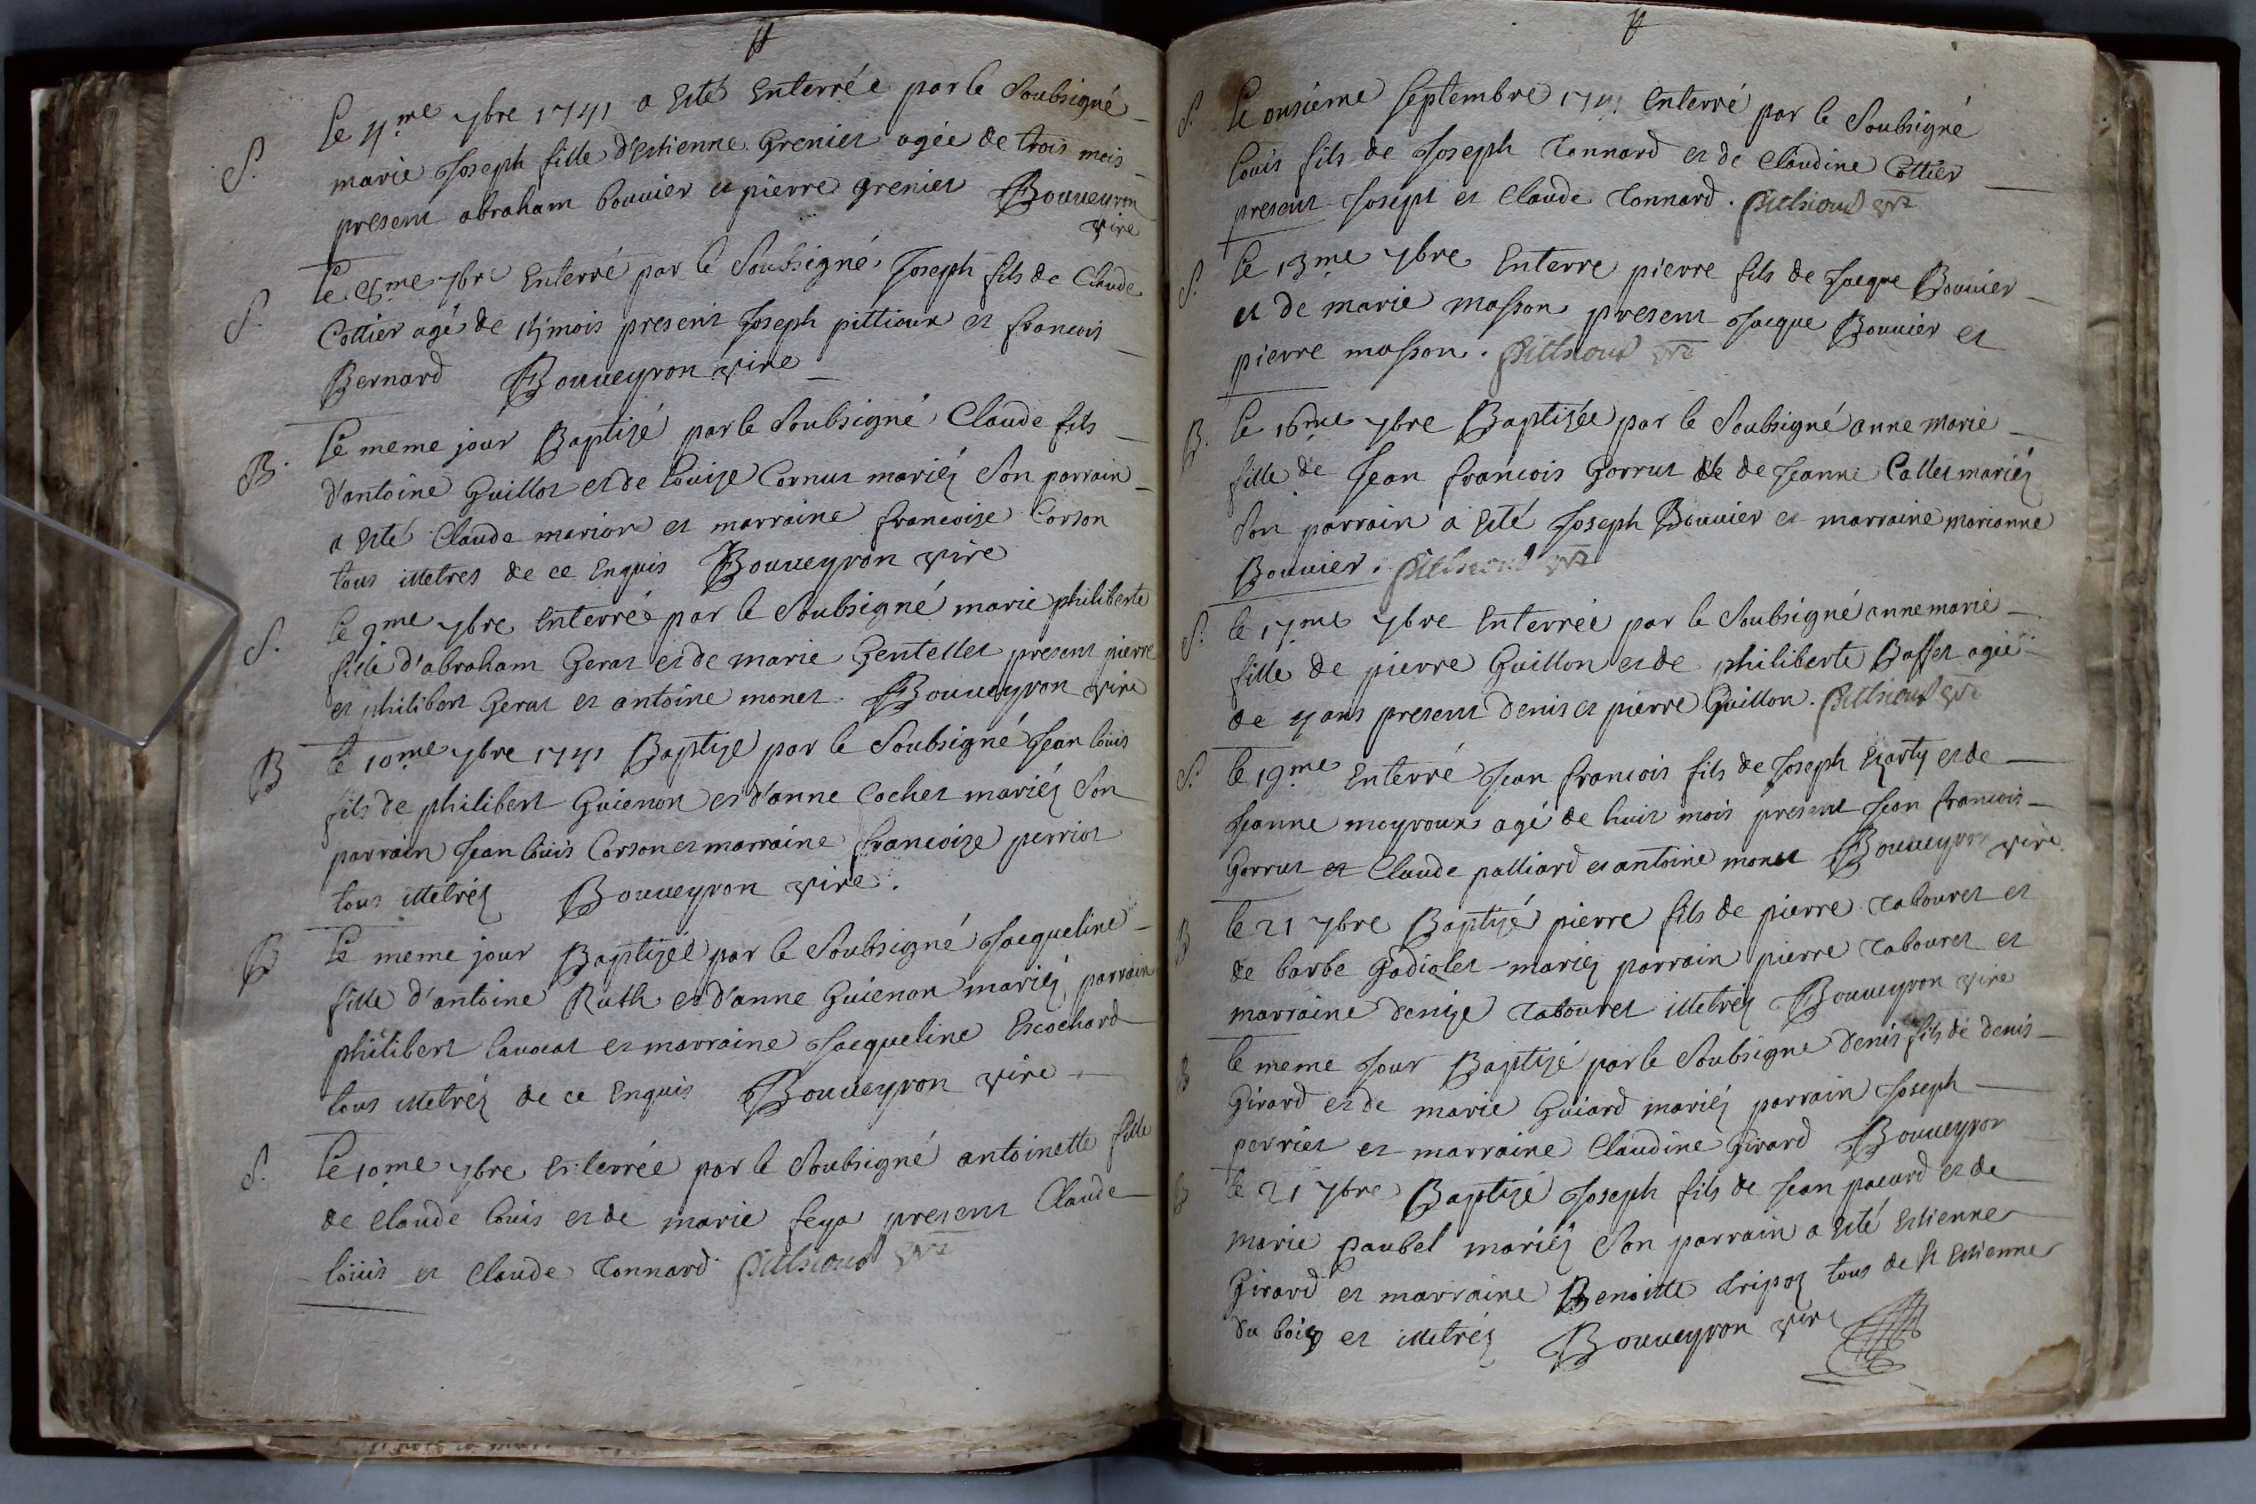 S. Le 4me 7bre 1741 a Esté Enterrée par le Soubsigné
marie Joseph fille d'Estienne Grenier agée de trois mois
present abraham bouvier et pierre grenier Bouveyron
vire
S. Le 8me 7bre Enterré par le Soubsigné Joseph fils de Claude
Cottier agé de mois present Joseph pittioux et francois
Bernard Bouveyron vire
B. Le meme jour Baptizé par le Soubsigné Claude fils
d'antoine Guillot et de Louize Cornut mariéz Son parrain
a Esté Claude marion et marraine francoize Corson
tous illetres de ce Enquis Bouveyron vire
S. Le 9me 7bre Enterrée par le Soubsigné marie philiberte
fille d'abraham Gerat et de marie Gentellet present pierre
et philibert Gerat et antoine monet Bouveyron vire
B Le 10me 7bre 1741 Baptizé par le Soubsigné Jean louis
fils de philibert Guienon et d'anne Cochet mariéz Son
parrain Jean louis Corson et marraine francoize perriot
tous illetréz Bouveyron vire.
B Le meme jour Baptizée par le Soubsigné Jacqueline
fille d'antoine Ruth et d'anne Guienon mariéz, parrain
philibert lavocat et marraine Jacqueline Escochard
tous illetréz de ce Enquis Bouveyron vire
S. Le 10me 7bre Enterrée par le Soubsigné antoinette fille
de Claude louis et de marie feya present Claude
louis et Claude Tonnard. pittioud
S. Le onsieme Septembre 1741 Enterré par le Soubsigné
louis fils de Joseph Tonnard et de Claudine Cottier
present Joseph et Claude Tonnard. pittioud
S. Le 13me 7bre Enterre pierre fils de Jacque Bouvier
et de marie masson present Jacque Bouvier et
pierre masson. pittioud
B. Le 16me 7bre Baptizée par le Soubsigné anne marie
fille de Jean francois Gorrut de de Jeanne Callet mariéz
Son parrain a Esté Joseph Bouvier et marraine marianne
Bouvier. pittioud
S. Le 17me 7bre Enterrée par le Soubsigné anne marie
fille de pierre Guillon et de philiberte Buffet agée
de 4 ans present denis et pierre Guillon. pittioud
S. Le 19me Enterré Jean francois fils de Joseph Exarty et de
Jeanne moyroux agé de huit mois present Jean francois
Gorrut et Claude palliard et antoine monet Bouveyron vire
B Le 21 7bre Baptizé pierre fils de pierre Tabouret et
de barbe Gadiolet mariéz parrain pierre Tabouret et
marraine denize Tabouret illetréz Bouveyron vire
B Le meme Jour Baptizé par le Soubsigne denis fils de denis
Girard et de marie Guiard mariéz parrain Joseph
perrier et marraine Claudine Girard Bouveyron
B Le 21 7bre Baptizé Joseph fils de Jean pacard et de
marie paubel mariéz Son parrain a Esté Estienne
Girard et marraine Benoitte tripoz tous de St Estienne
du boiz et illetréz Bouveyron vire